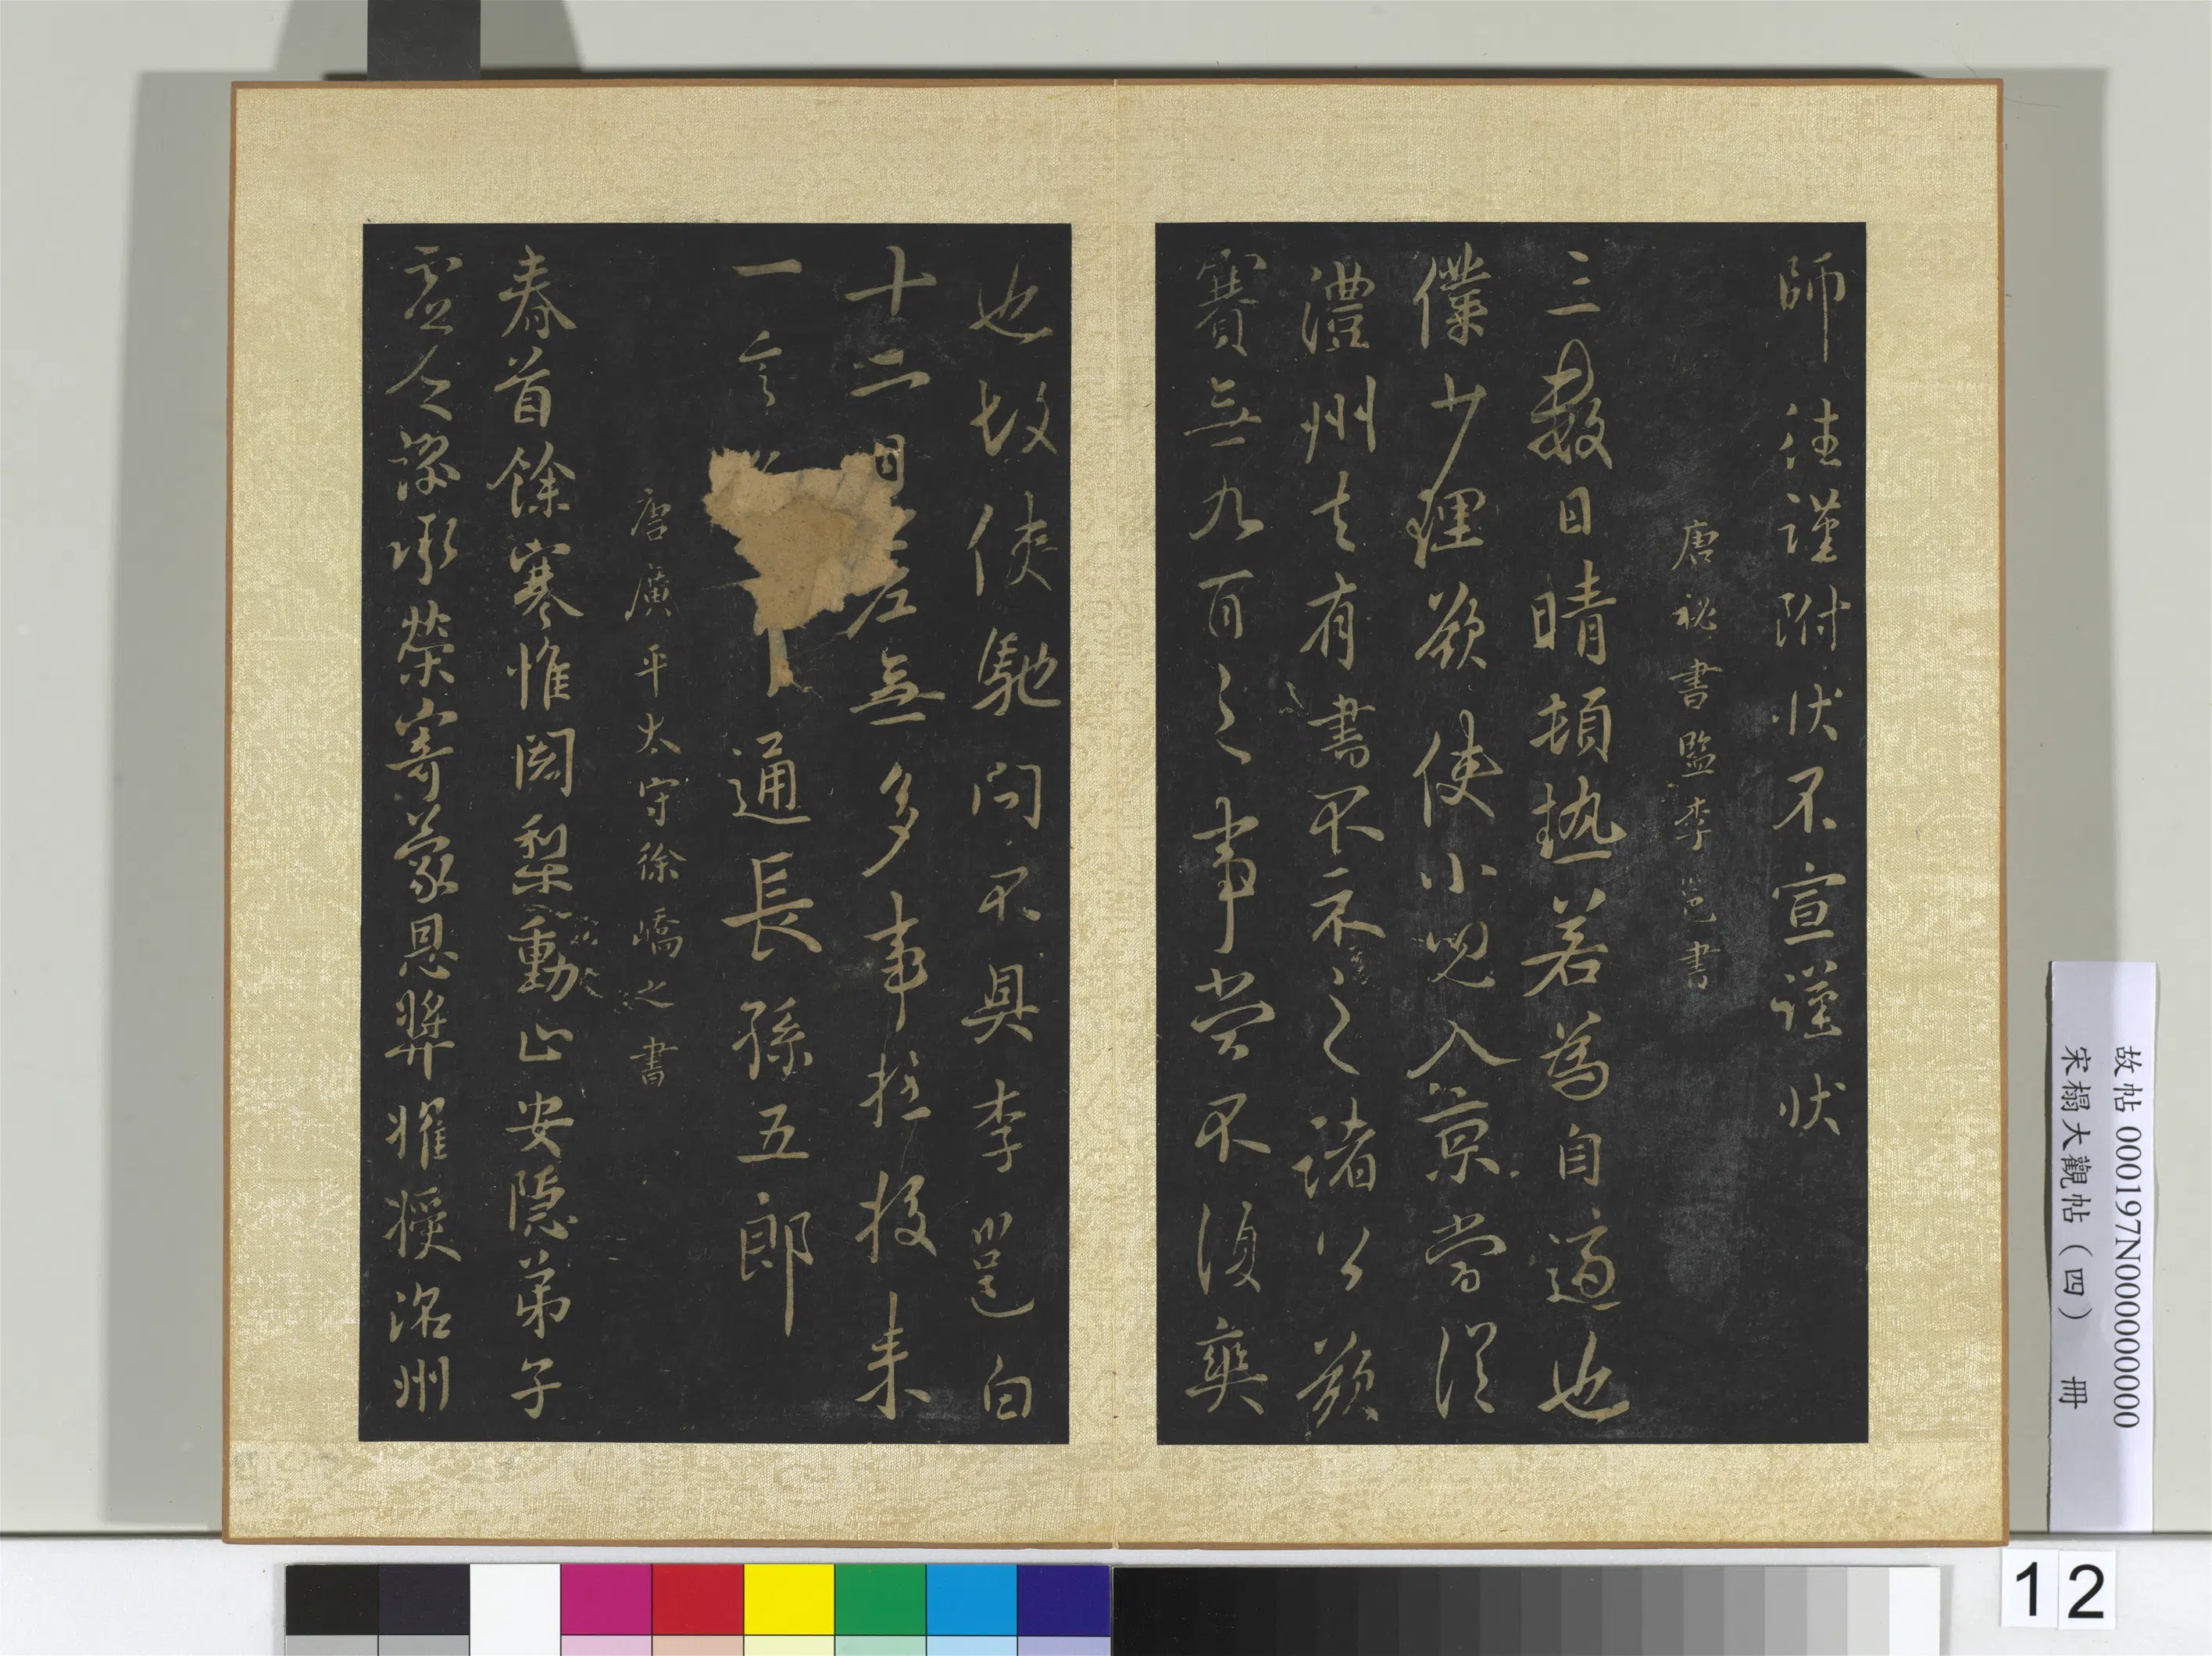 師 往謹附状不宣謹状
唐祕書監李邕書
三數日晴頓熱若為自適也
僕少理欲使小兒入京當從
澧州去有書不示之諸公欲
賽無九百之事當不復奭
也故使馳問不具李邕白
十二日 無多事 投来
一 通長孫五郎
唐廣平太守徐嶠之書
春首餘寒惟闍梨動止安隱弟子
虛乏謬承榮寄蒙恩 擢授洺州
故帖 000197N000000000
宋榻大觀帖(四) 冊
12